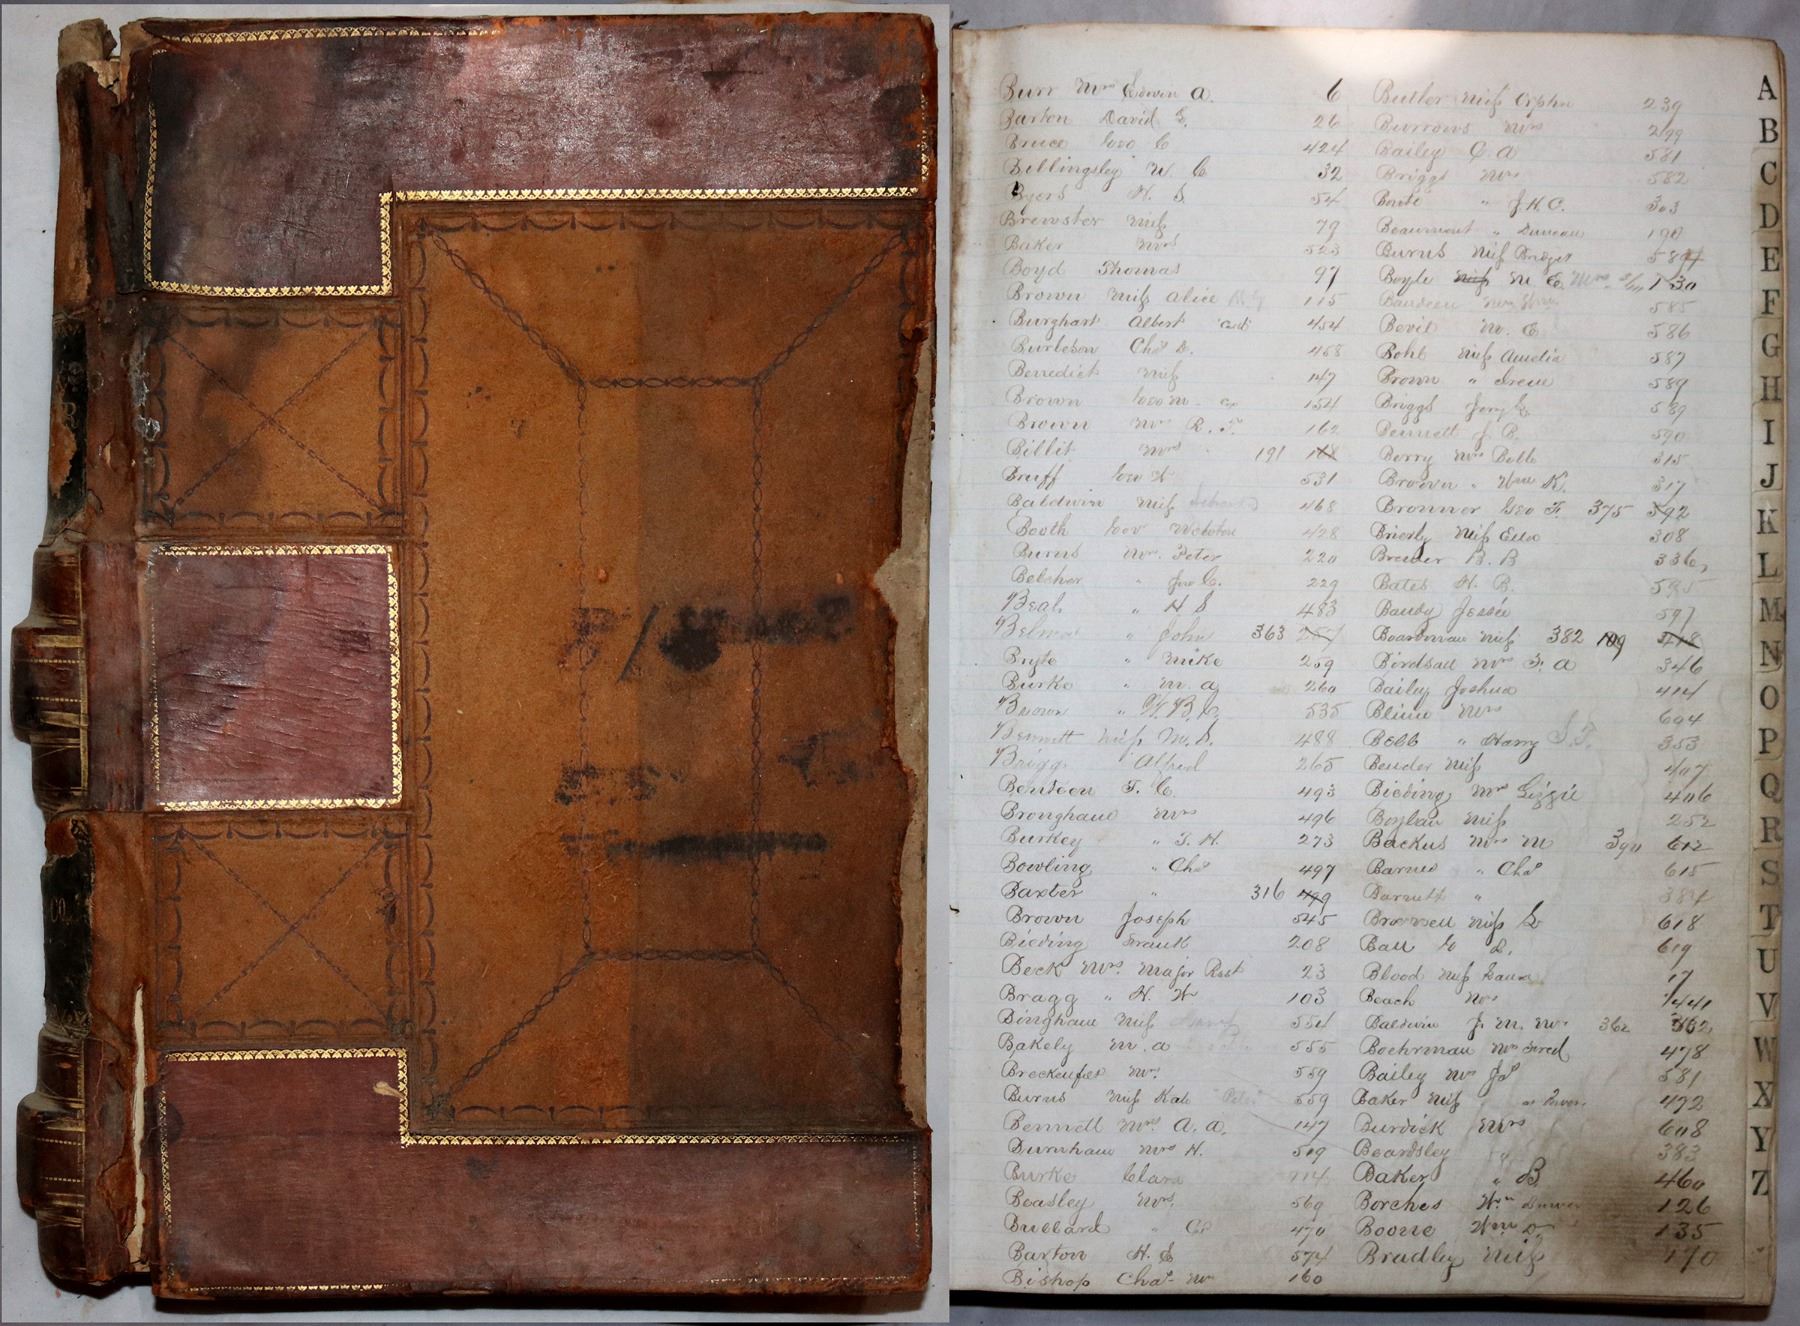 Burr Mrs Edwin A. 6
Barton David E. 26
Bruce Geo C 424
Billingsley W. C 32
Byers H. S. 54
Brewster Miss 79
Baker Mrs 523
Boyd Thomas 97
Brown Miss Alice 115
Burghart Albert 454
Burleson Chas D. 458
Benedict Miss 147
Brown Geo W. 154
Brown Mrs R. T. 162
Billit Mrs 191 188
Bruff Geo W 531
Baldwin Miss 468
Booth Geo Webster 428
Burns Mrs. Peter 220
Belcher " Jno C. 229
Beal " H S 483
Belmer " John 363 257
Bryte " Mike 259
Burke " M. A 260
Brown " W. B. C. 535
Bennett Miss M. S. 488
Briggs Alfred 265
Benteen F. C. 493
Bronghame Mrs 496
Burkey " T. H. 273
Bowling " Chas 497
Baxter " 316 499
Brown Joseph 545
Bieding Frank 208
Beck Mrs. Major Robt 23
Bragg " H. W 103
Bingham Miss 554
Bakely M. A 555
Breckenfes Mrs. 559
Burns Miss Kate 559
Bennett Mrs A. A. 147
Burnham Mrs H. 519
Burke Clara 114
Beasley Mrs. 569
Bullard " Co 470
Barton H. E 574
Bishop Chas. W 160
Butler Miss Orpha 239
Burrows Mrs 299
Bailey C. A 581
Briggs Mrs 582
Boute " J. H. C. 303
Beaumont " Duncan 190
Burns Miss Bridget 584
Boyle Miss M E. Mrs. 130
585
Bevil M. E 586
Bohl Miss Amelia 587
Brown " Irene 589
Briggs Jerry E 589
Bennett J. B. 590
Berry Mrs Belle 315
Brown " Wm K. 317
Bronner Geo F. 375 592
Brierly Miss Ella 308
Brewer B. B 336
Bates H. B. 595
Bandy Jessie 597
Boardman Miss 382 109 418
Birdsall Mrs F. A 346
Bailey Joshua 414
Blum Mrs 604
Bebb " Harry S. F. 353
Bender Miss 407
Bieding Mrs Lizzie 406
Boylan Miss 252
Backus Mrs M 390 612
Barnes " Chas 615
Barnett " 384
Brownell Miss L 618
Ball G D. 619
Blood Miss Laura 17
Beach Mrs 441
Baldwin J. M. Mrs 362 362
Boehrman Mrs Fred 478
Bailey Mrs Jas 581
Baker Miss 472
Burdick Mrs 608
Beardsley " 383
Baker " B 460
Borches Wm Denver 126
Boone Wm D. 135
Bradley Miss 170
A
B
C
D
E
F
G
H
I
J
K
L
M
N
O
P
Q
R
S
T
U
V
W
X
Y
Z